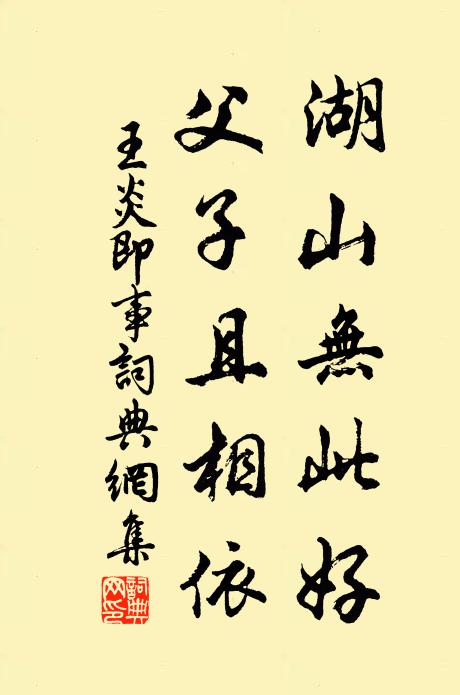 湖山無此好
父子且相依
王炎即事詞典網集
詞典網印